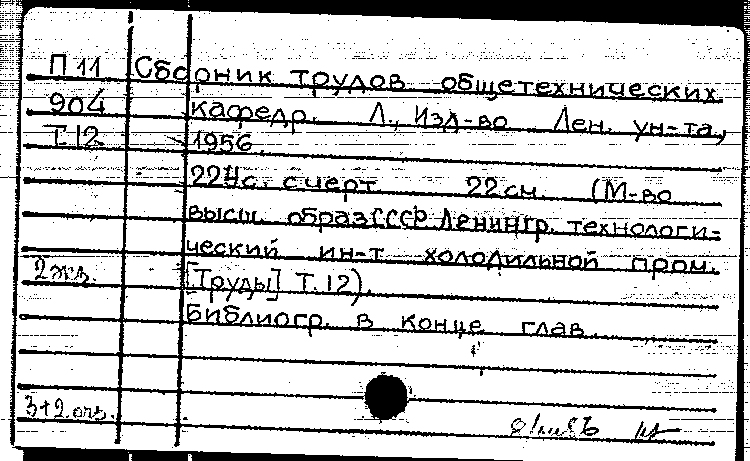 П 11 Сборник трудов общетехнических
904 кафедр. Л., Изд-во Лен. ун-та,
Т.12 1956.
224с. с черт. 22 см. (М-во
высш. образ. СССР. Ленингр. технологи-
ческий ин-т холодильной пром.
2 жз. [Труды] Т. 12).
Библиогр. в конце глав.
3+2 отз.